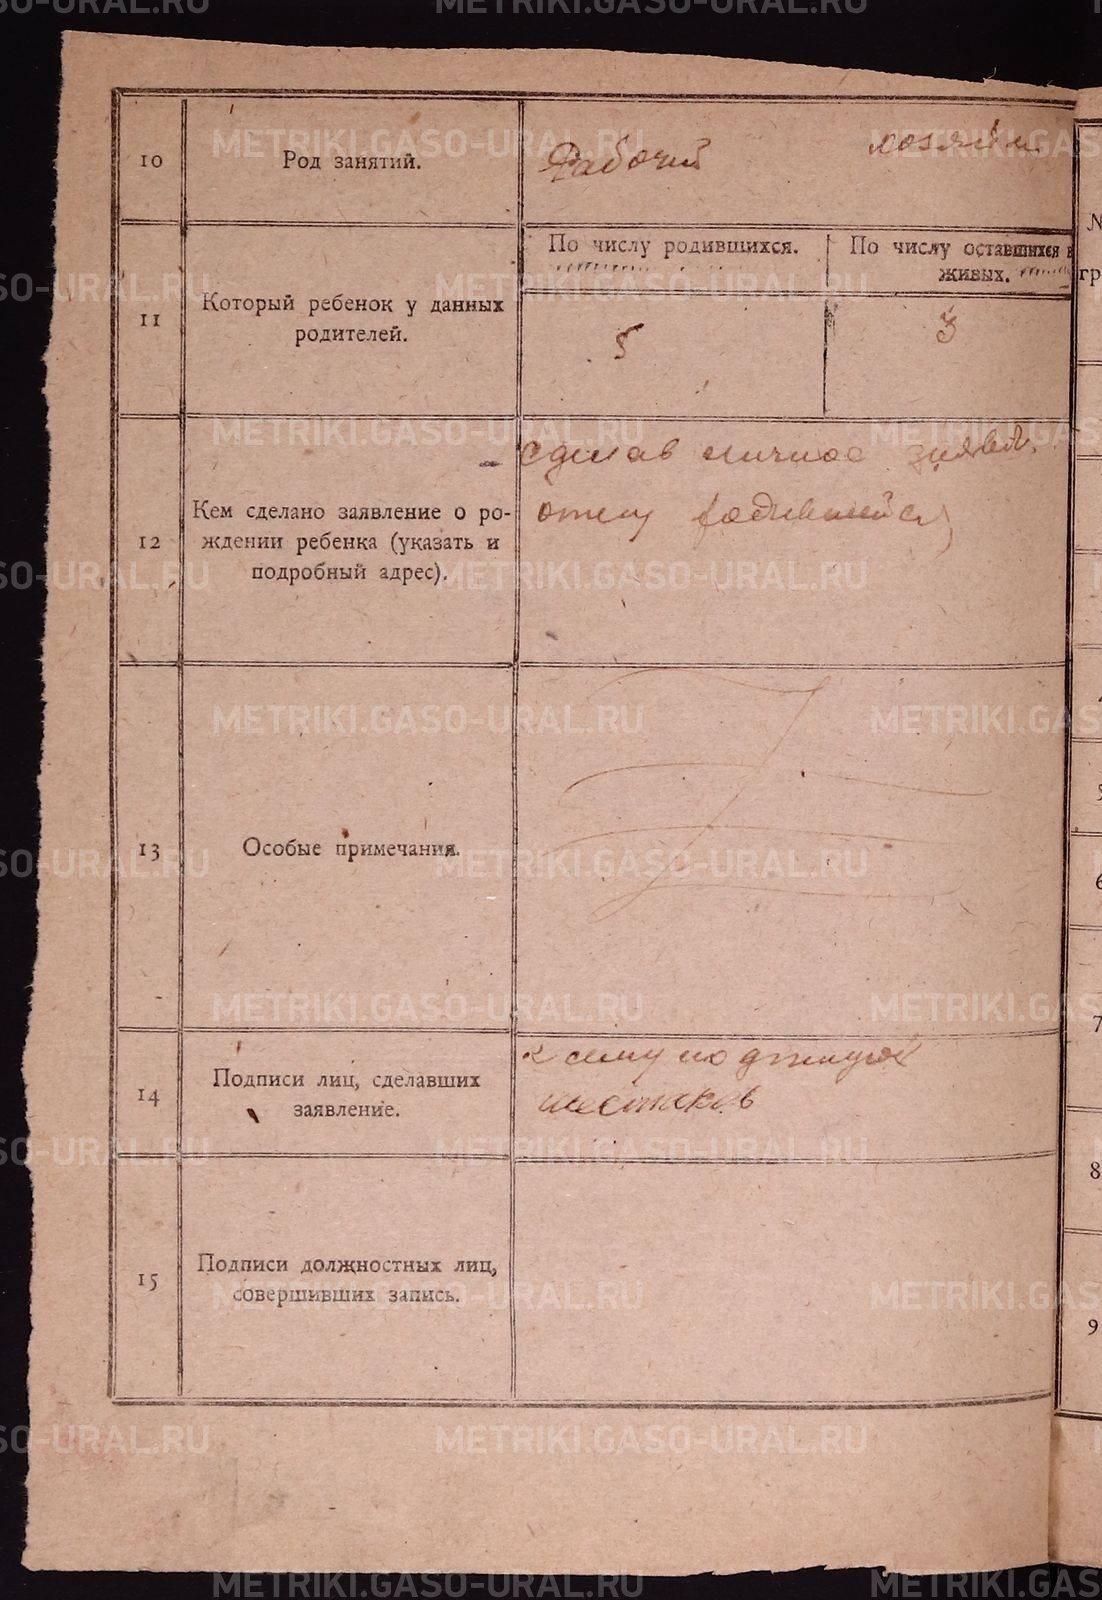 METRIKI.GASO-URAL.RU
10
Род занятий.
Рабочий
хозяйк.
11
Который ребенок у данных
родителей.
По числу родившихся.
По числу оставшихся в
живых.
5
3
12
Кем сделано заявление о ро-
ждении ребенка (указать и
подробный адрес).
личное заявл.
13
Особые примечания.
14
Подписи лиц, сделавших
заявление.
к сему
Шестаков
15
Подписи должностных лиц,
совершивших запись.
№
гр
6
7
8
9